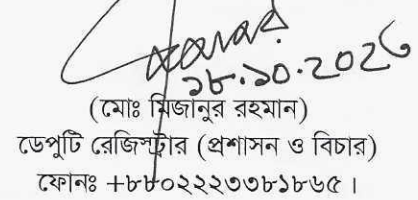 ১৮.১০.202৬
(মোঃ মিজানুর রহমান)
ডেপুটি রেজিস্ট্রার (প্রশাসন ও বিচার)
ফোনঃ +৮৮০২২২৩৩৮১৮৬৫।